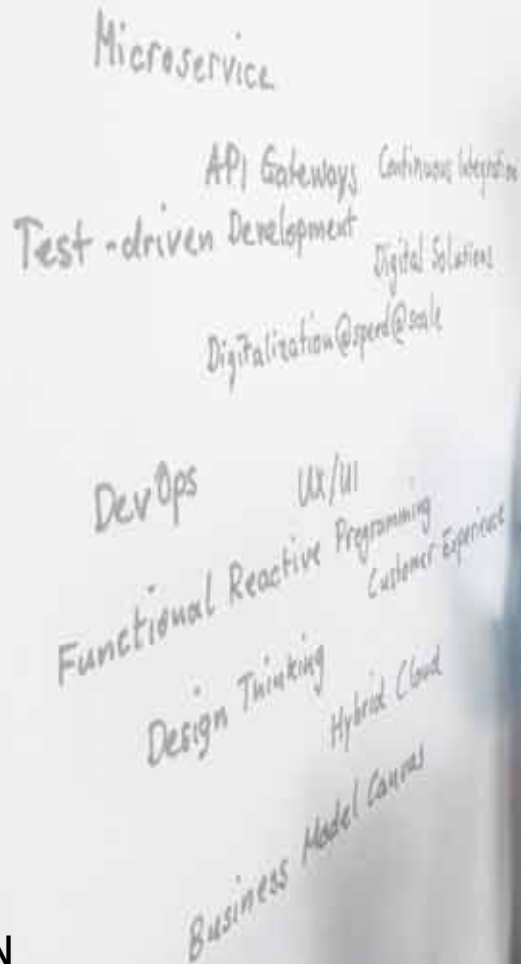 Microservice
API Gateways Continuous Integration
Test-driven Development
Digital Solutions
Digitalization@speed@scale
DevOps UX/UI
Functional Reactive Programming
Customer Experience
Design Thinking
Hybrid Cloud
Business Model Canvas
N